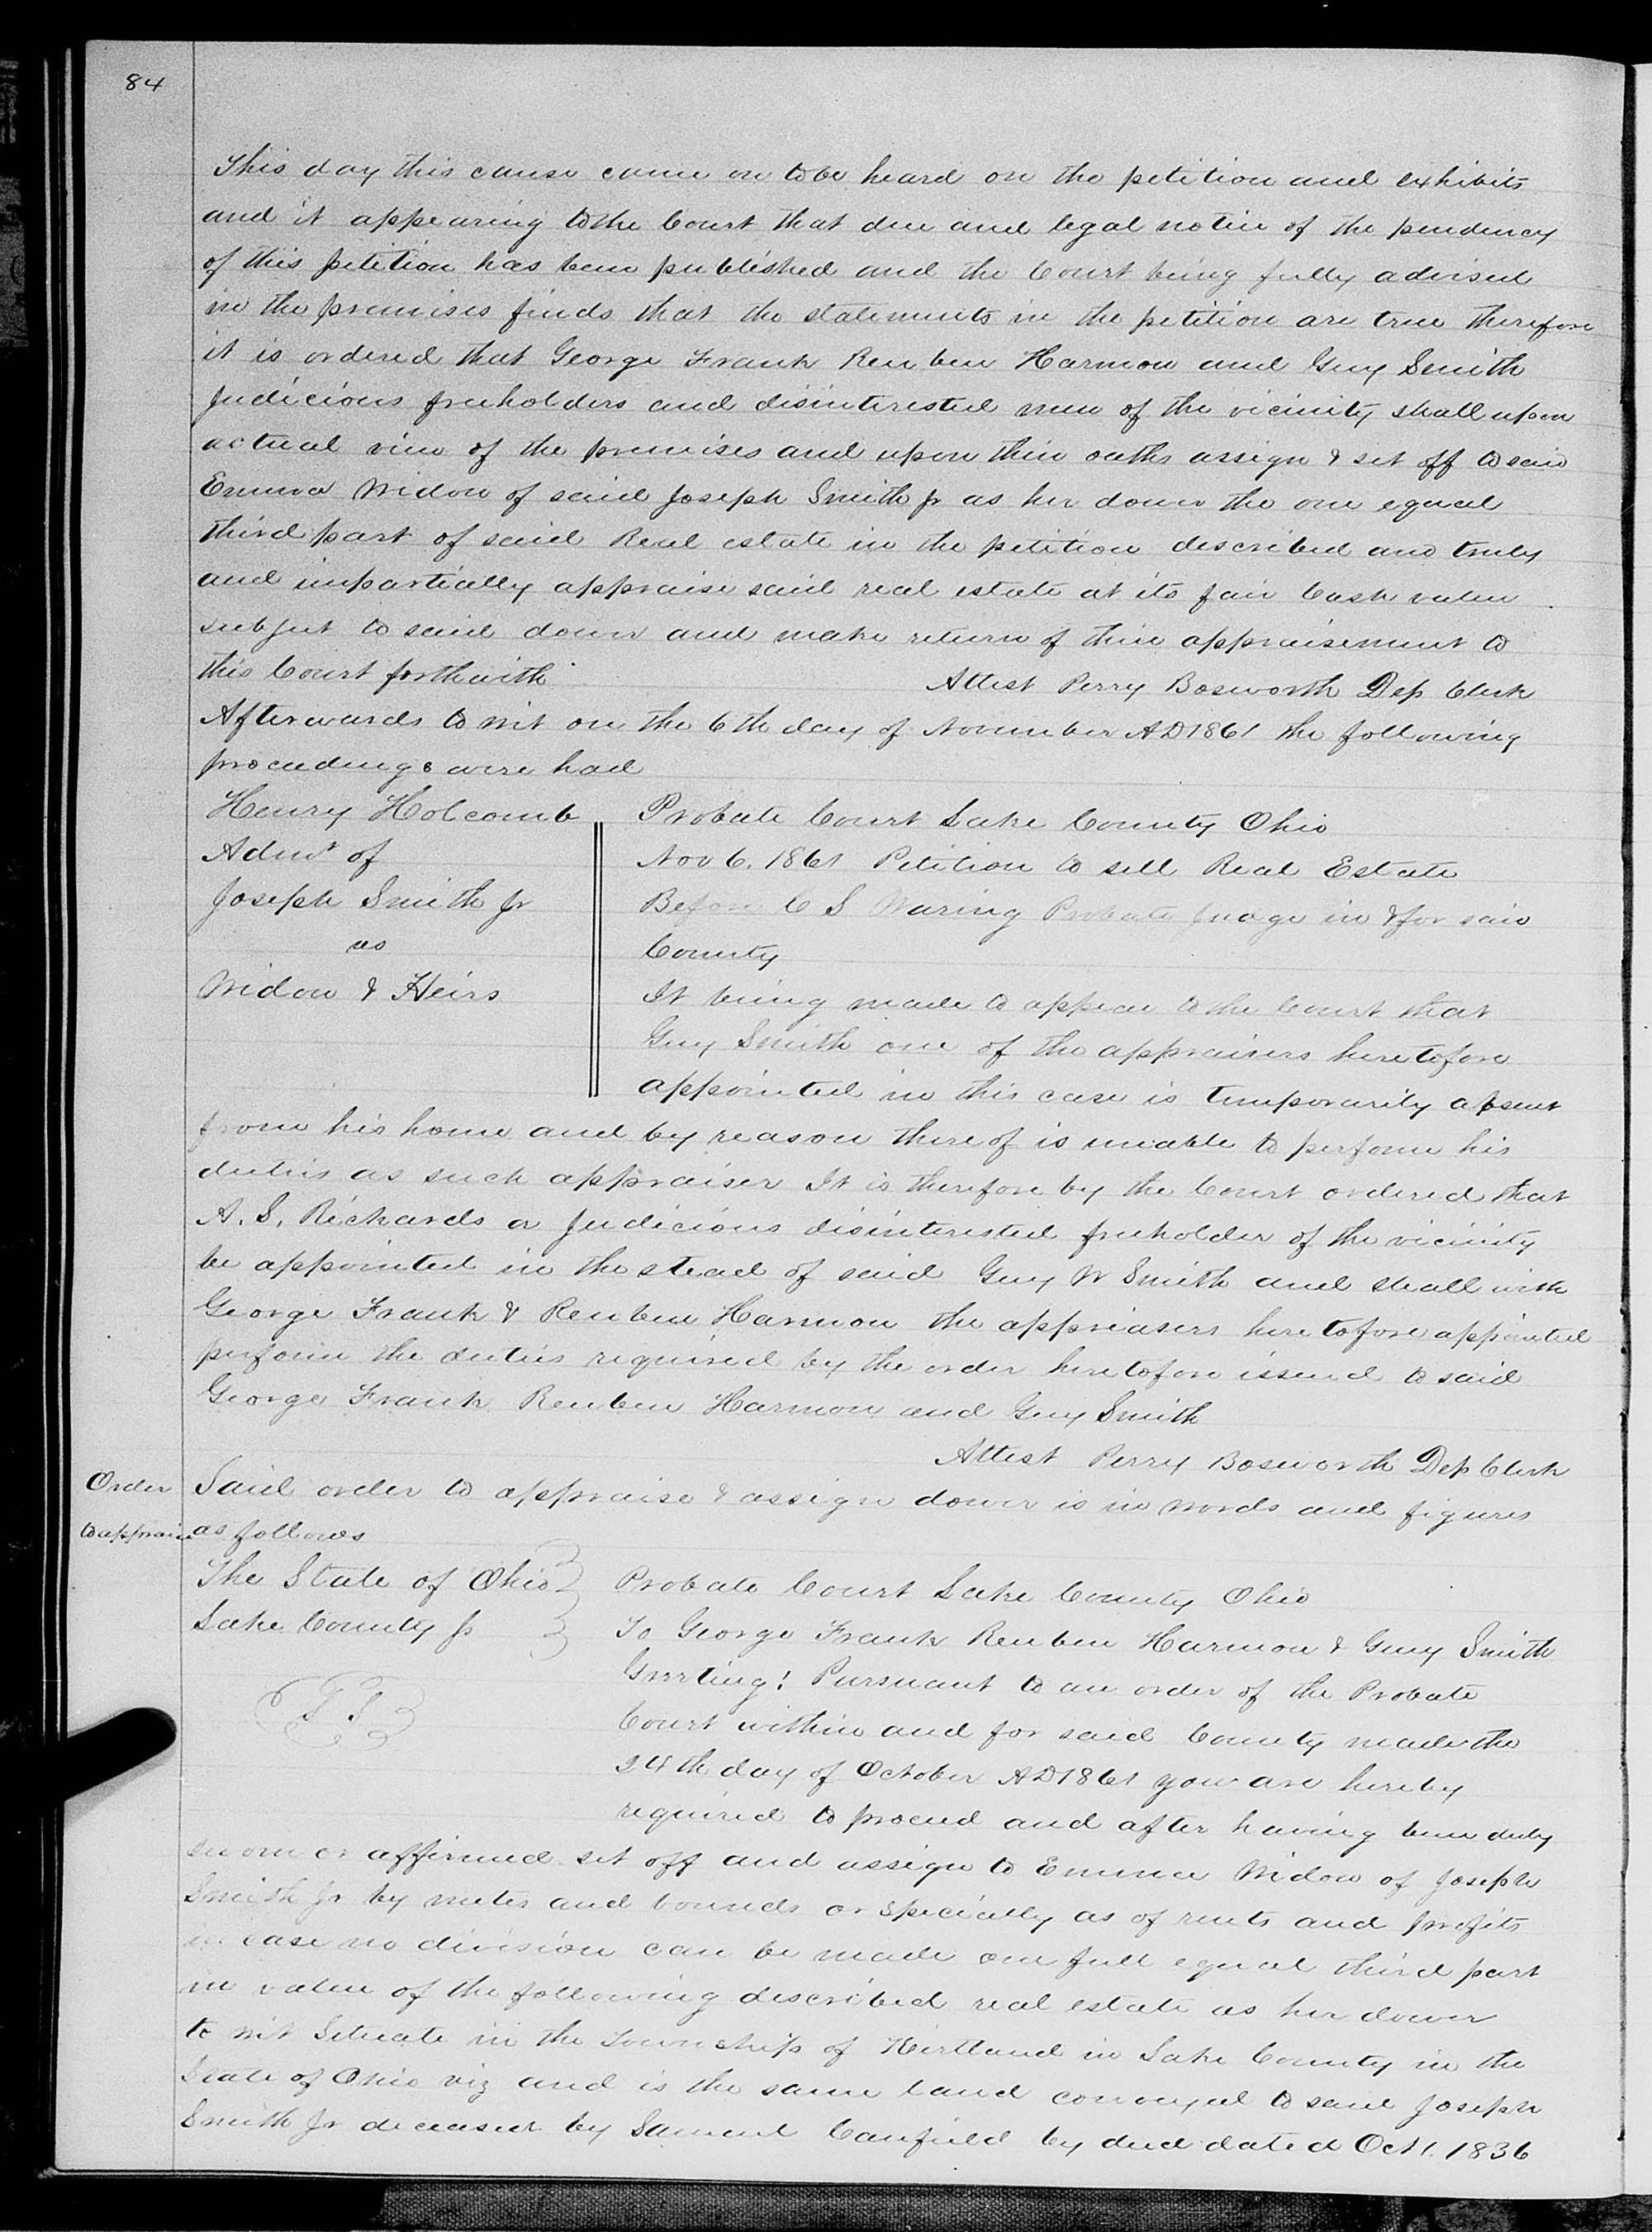 84
This day this cause came on to be heard on the petition and exhibits
and it appearing to the Court that due and legal notice of the pendency
of this petition has been published and the Court being fully advised
in the premises finds that the statements in the petition are true therefore
it is ordered that George Frank Reuben Harmon and Guy Smith
Judicious freeholders and disinterested men of the vicinity shall upon
actual view of the premises and upon their oaths assign & set off to said
Emma Widow of said Joseph Smith Jr as her dower the one equal
third part of said Real estate in the petition described and truly
and impartially appraise said real estate at its fair Cash value
subject to said dower and make return of their appraisement to
this Court forthwith
Attest Perry Bosworth Dep Clerk
Afterwards to wit on the 6th day of November AD 1861 the following
proceedings were had
Henry Holcomb
Admr of
Joseph Smith Jr
vs
Widow & Heirs
Probate Court Lake County Ohio
Nov 6. 1861 Petition to sell Real Estate
Before C S Waring Probate Judge in & for said
County
It being made to appear to the Court that
Guy Smith one of the appraisers heretofore
appointed in this case is temporarily absent
from his home and by reason thereof is unable to perform his
duties as such appraiser It is therefore by the Court ordered that
A. S. Richards a Judicious disinterested freeholder of the vicinity
be appointed in the stead of said Guy W Smith and shall with
George Frank & Reuben Harmon the appriasers heretofore appointed
perform the duties required by the order heretofore issued to said
George Frank Reuben Harmon and Guy Smith
Attest Perry Bosworth Dep Clerk
Order
to appraise
Said order to appraise & assign dower is in words and figures
as follows
The State of Ohio
Lake County ss
L S
Probate Court Lake County Ohio
To George Frank Reuben Harmon & Guy Smith
Greeting! Pursuant to an order of the Probate
Court within and for said County made the
24th day of October AD 1861 you are hereby
required to proceed and after having been duly
sworn or affirmed set off and assign to Emma Widow of Joseph
Smith Jr by metes and bounds or specially as of rents and profits
in case no division can be made one full equal third part
in value of the following described real estate as her dower
to wit Situate in the Township of Kirtland in Lake County in the
State of Ohio viz and is the same land conveyed to said Joseph
Smith Jr deceased by Samuel Canfield by deed dated Oct 1. 1836